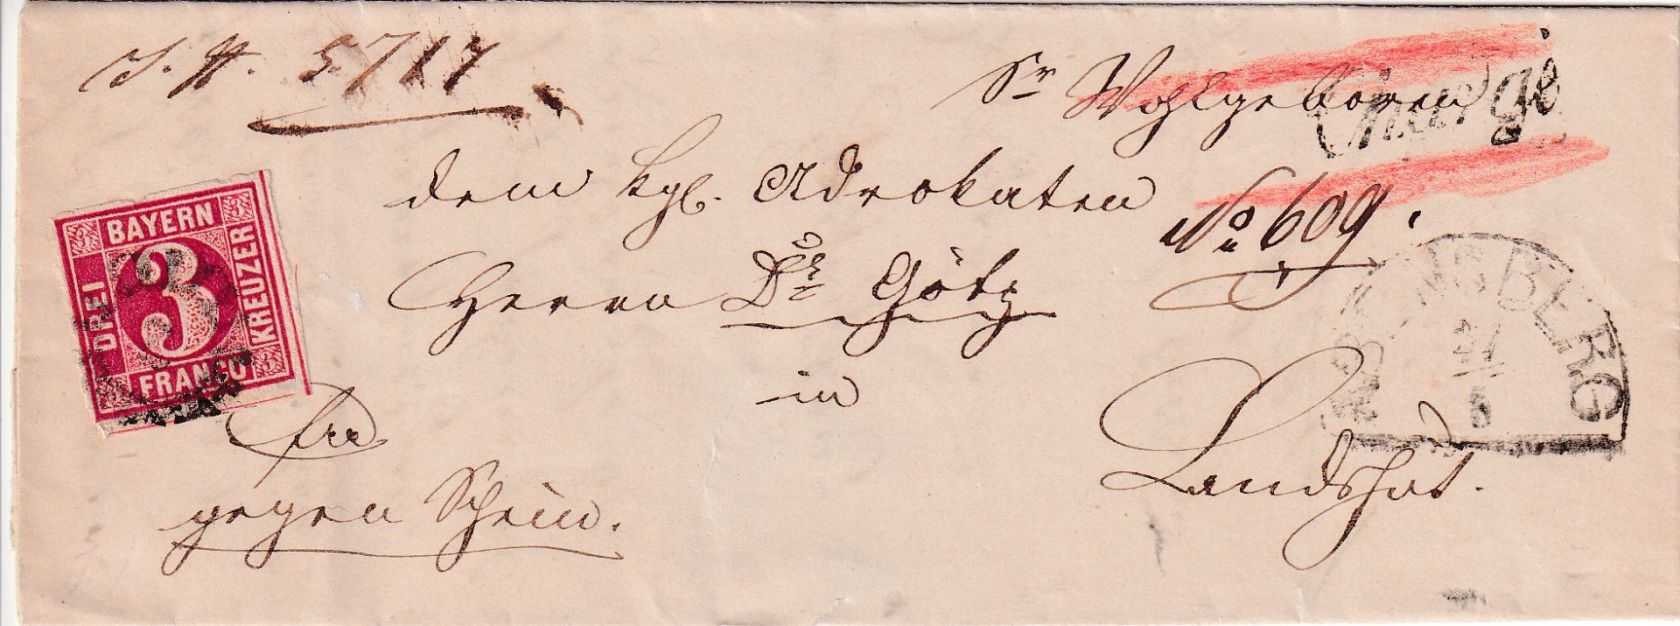 J. N. 5717
Sr Wohlgeboren
Chargé
dem kgl. Advokaten
No 609.
Herrn Dr. Götz
in
Landshut.
BAYERN
DREI
3
KREUZER
FRANCO
ABENSBERG
5
frei
gegen Schein.